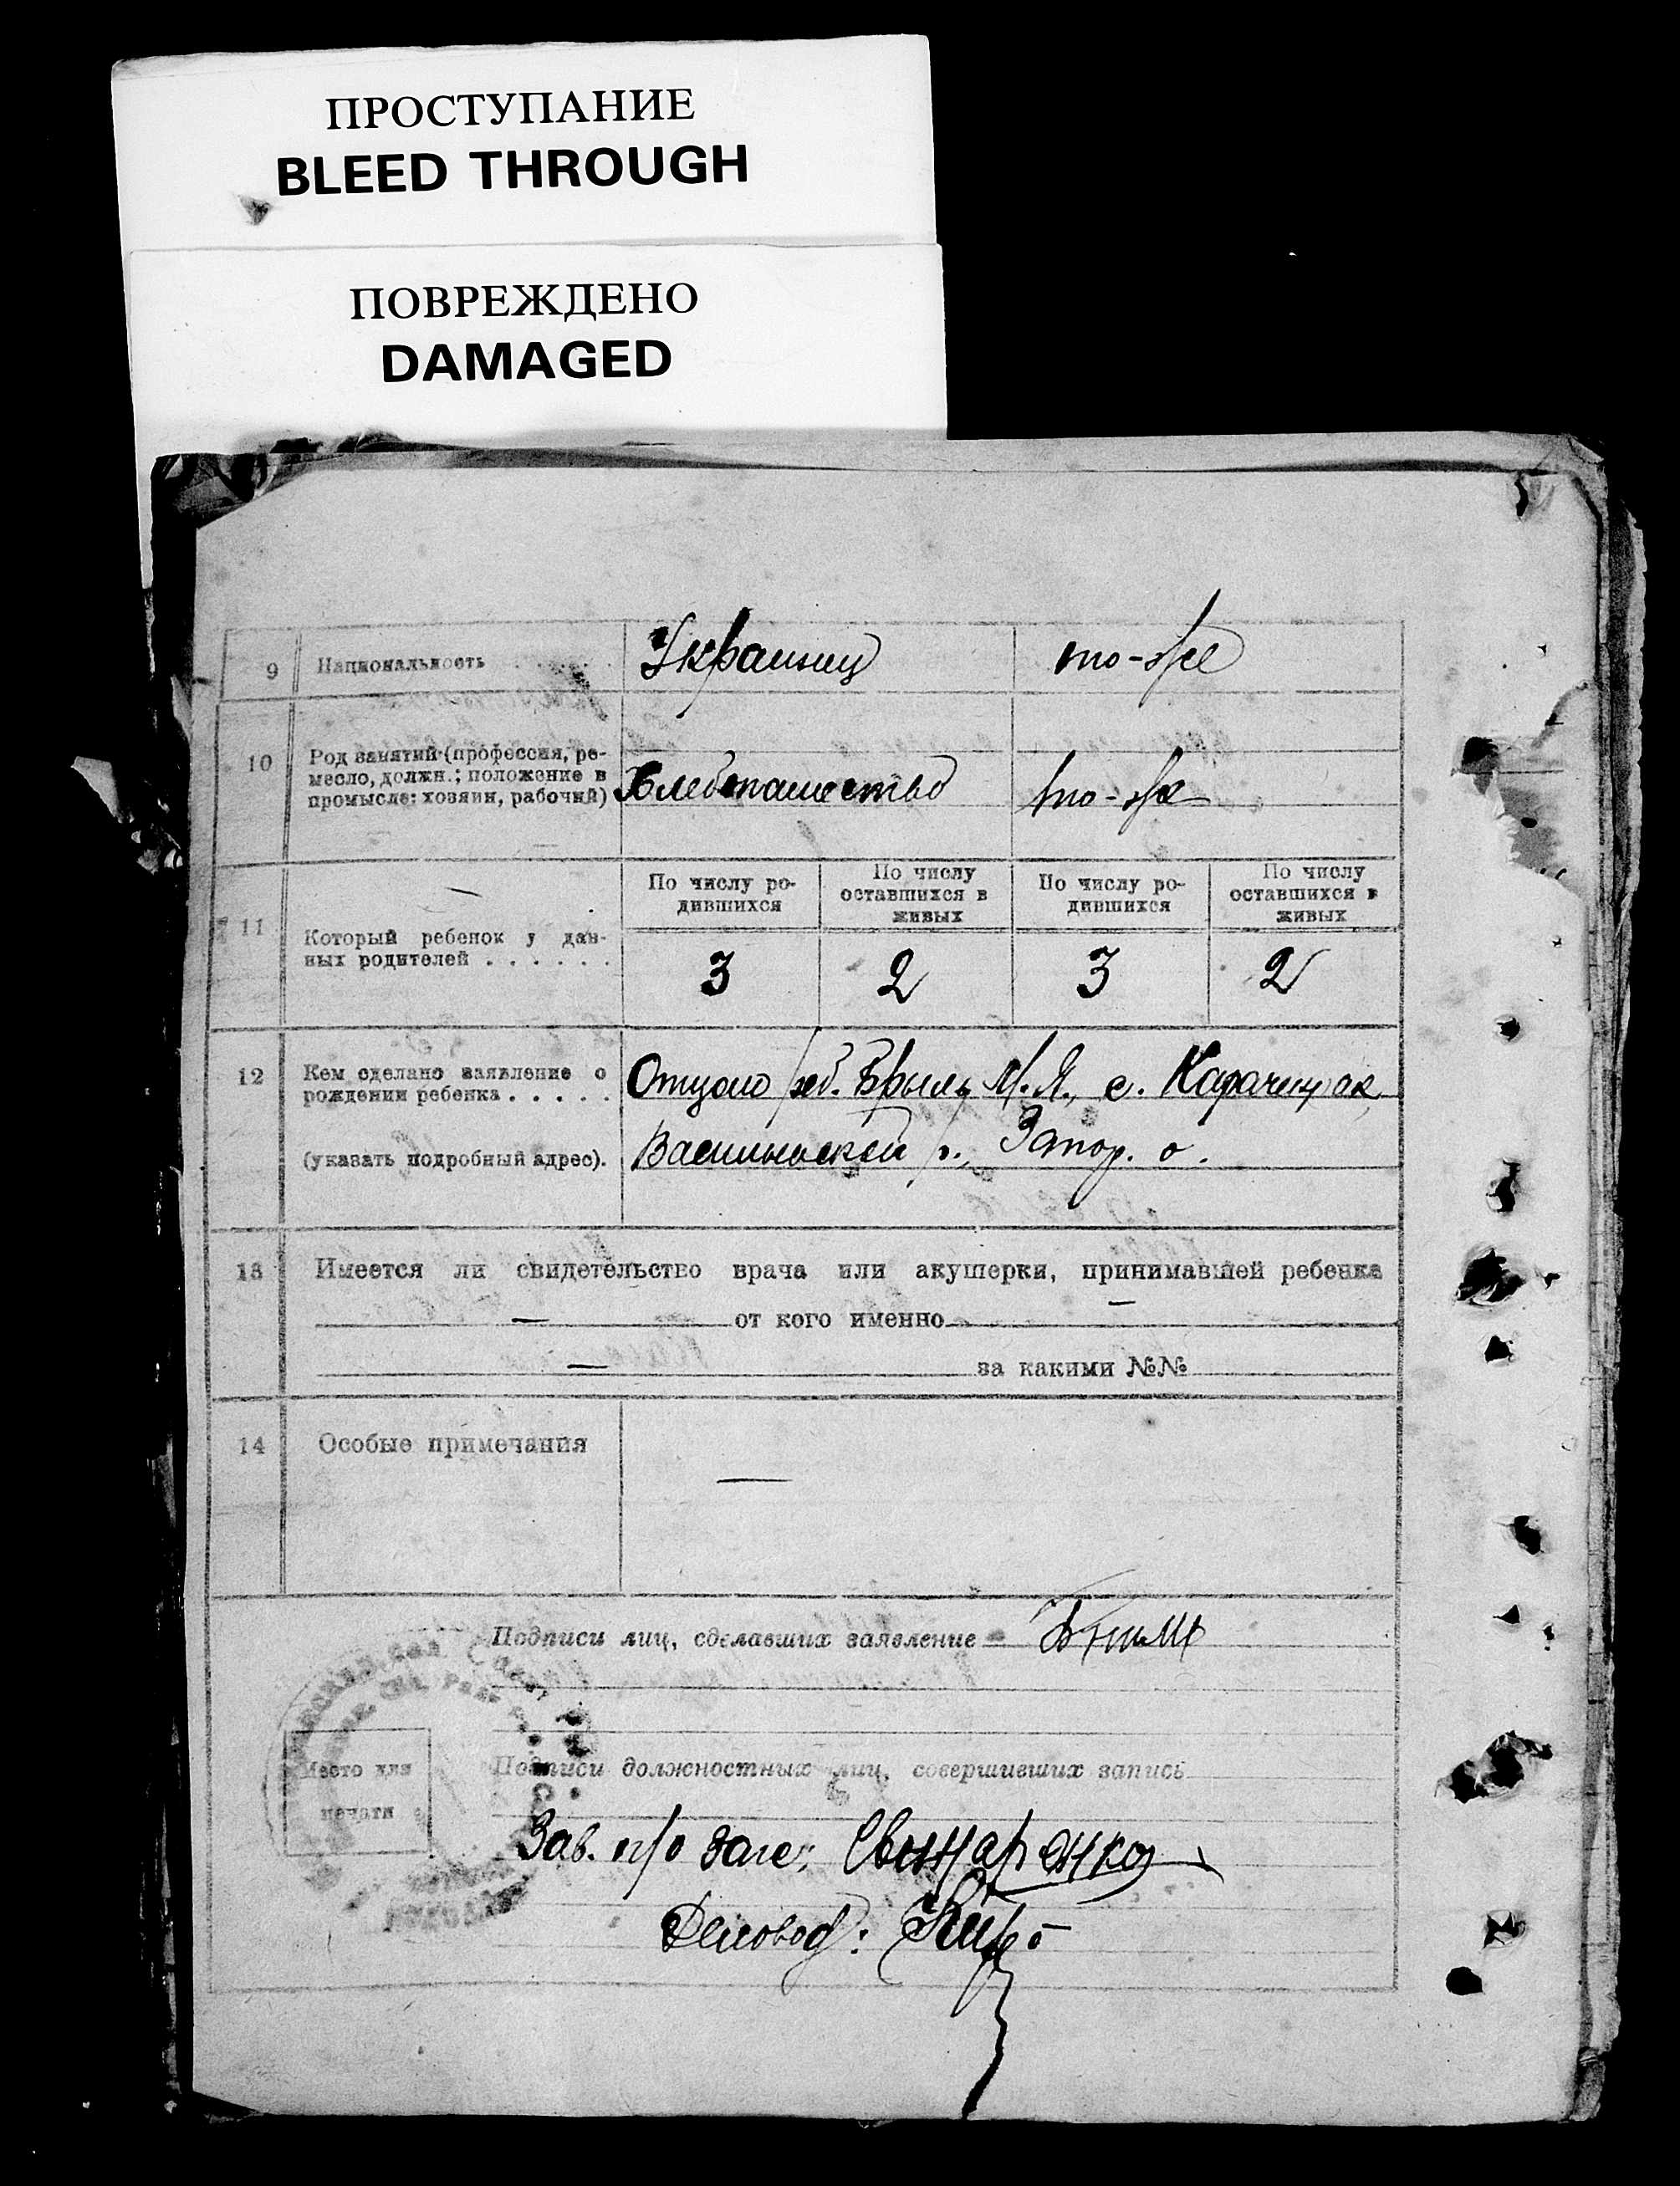 ПРОСТУПАНИЕ
BLEED THROUGH
ПОВРЕЖДЕНО
DAMAGED
9 Национальность . . . . . . Украинец то-же
10 Род занятий (профессия, ре-
месло, должн.; положение в
промысле: хозяин, рабочий)
Хлебопашество то-же
11 Который ребенок у дан-
ных родителей . . . . . .
По числу ро-
дившихся
По числу
оставшихся в
живых
По числу ро-
дившихся
По числу
оставшихся в
живых
3 2 3 2
12 Кем сделано заявление о
рождении ребенка . . . . .
(указать подробный адрес).
Отцом реб. Брыль М. Я., с. Карачекрак,
Васильевской р., Запор. о.
13 Имеется ли свидетельство врача или акушерки, принимавшей ребенка
— от кого именно —
— за какими №№
14 Особые примечания —
Подписи лиц, сделавших заявление
Место для
печати
Подписи должностных лиц, совершивших запись
Зав. п/о загс:
Деловод: